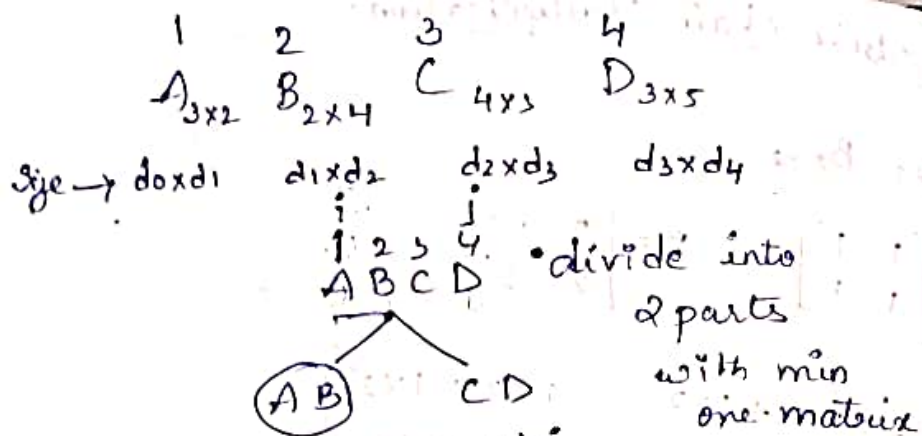 1 2 3 4
A3×2 B2×4 C4×3 D3×5
Size → d0×d1 d1×d2 d2×d3 d3×d4
i j
1 2 3 4 • divide into
A B C D 2 parts
with min
A B C D one matrix